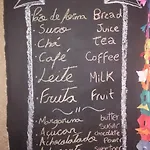 Pão de farina Bread
• Suco Juice
• Chá TEA
• Café Coffee
• Leite MiLK
• Fruta Fruit
• Margarina butter
Açúcar Sugar
Achocolatado chocolate
Powder